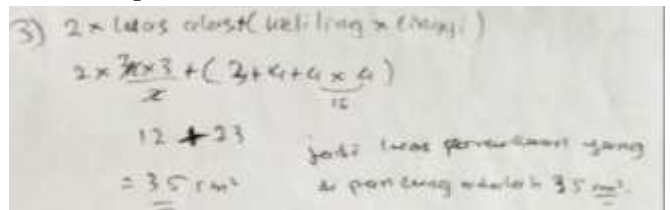 3) 2 × luas alas + ( keliling × tinggi )
2 × 4×3 + ( 3+4+4 × 4 )
2
16
12 + 23
= 35 cm²
jadi luas permukaan yang
di pancung adalah 35 cm².